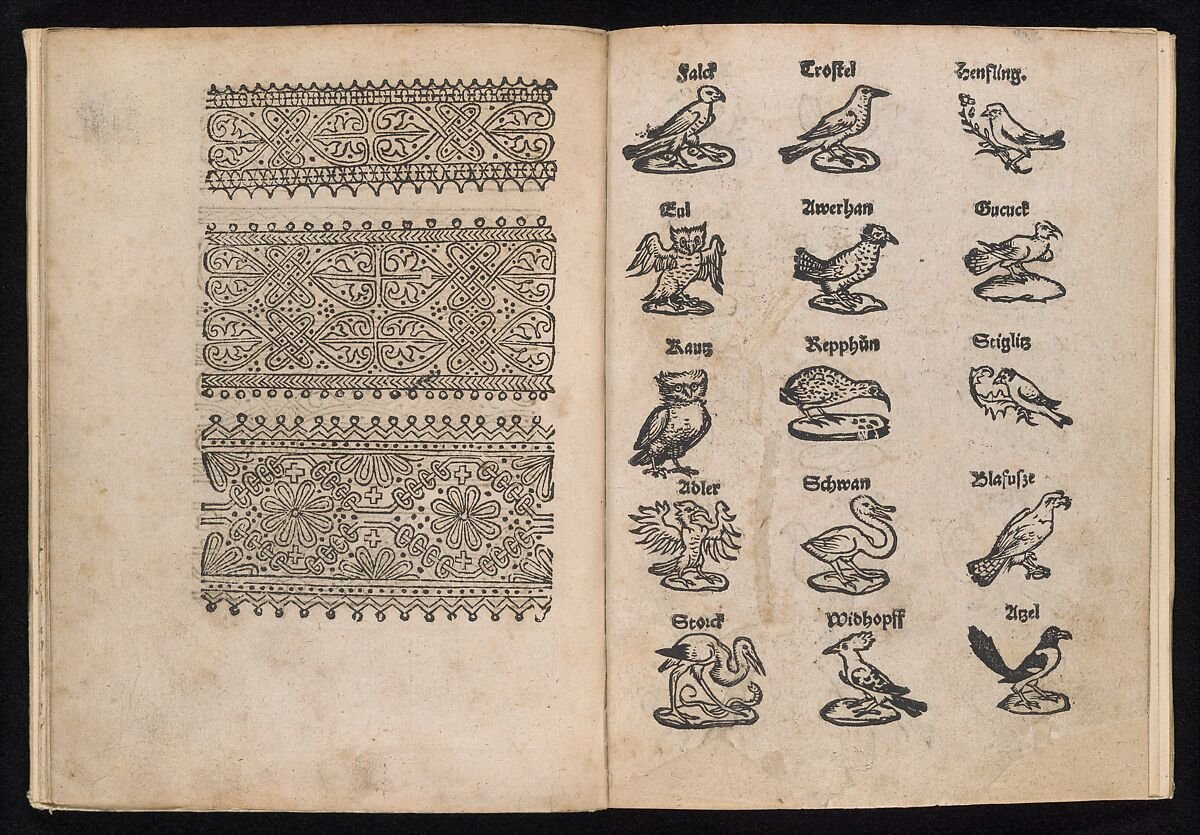 Falck Trostel Henfling.
Eul Awerhan Gucuck
Kautz Repphůn Stiglitz
Adler Schwan Blafusze
Storck Widhopff Atzel